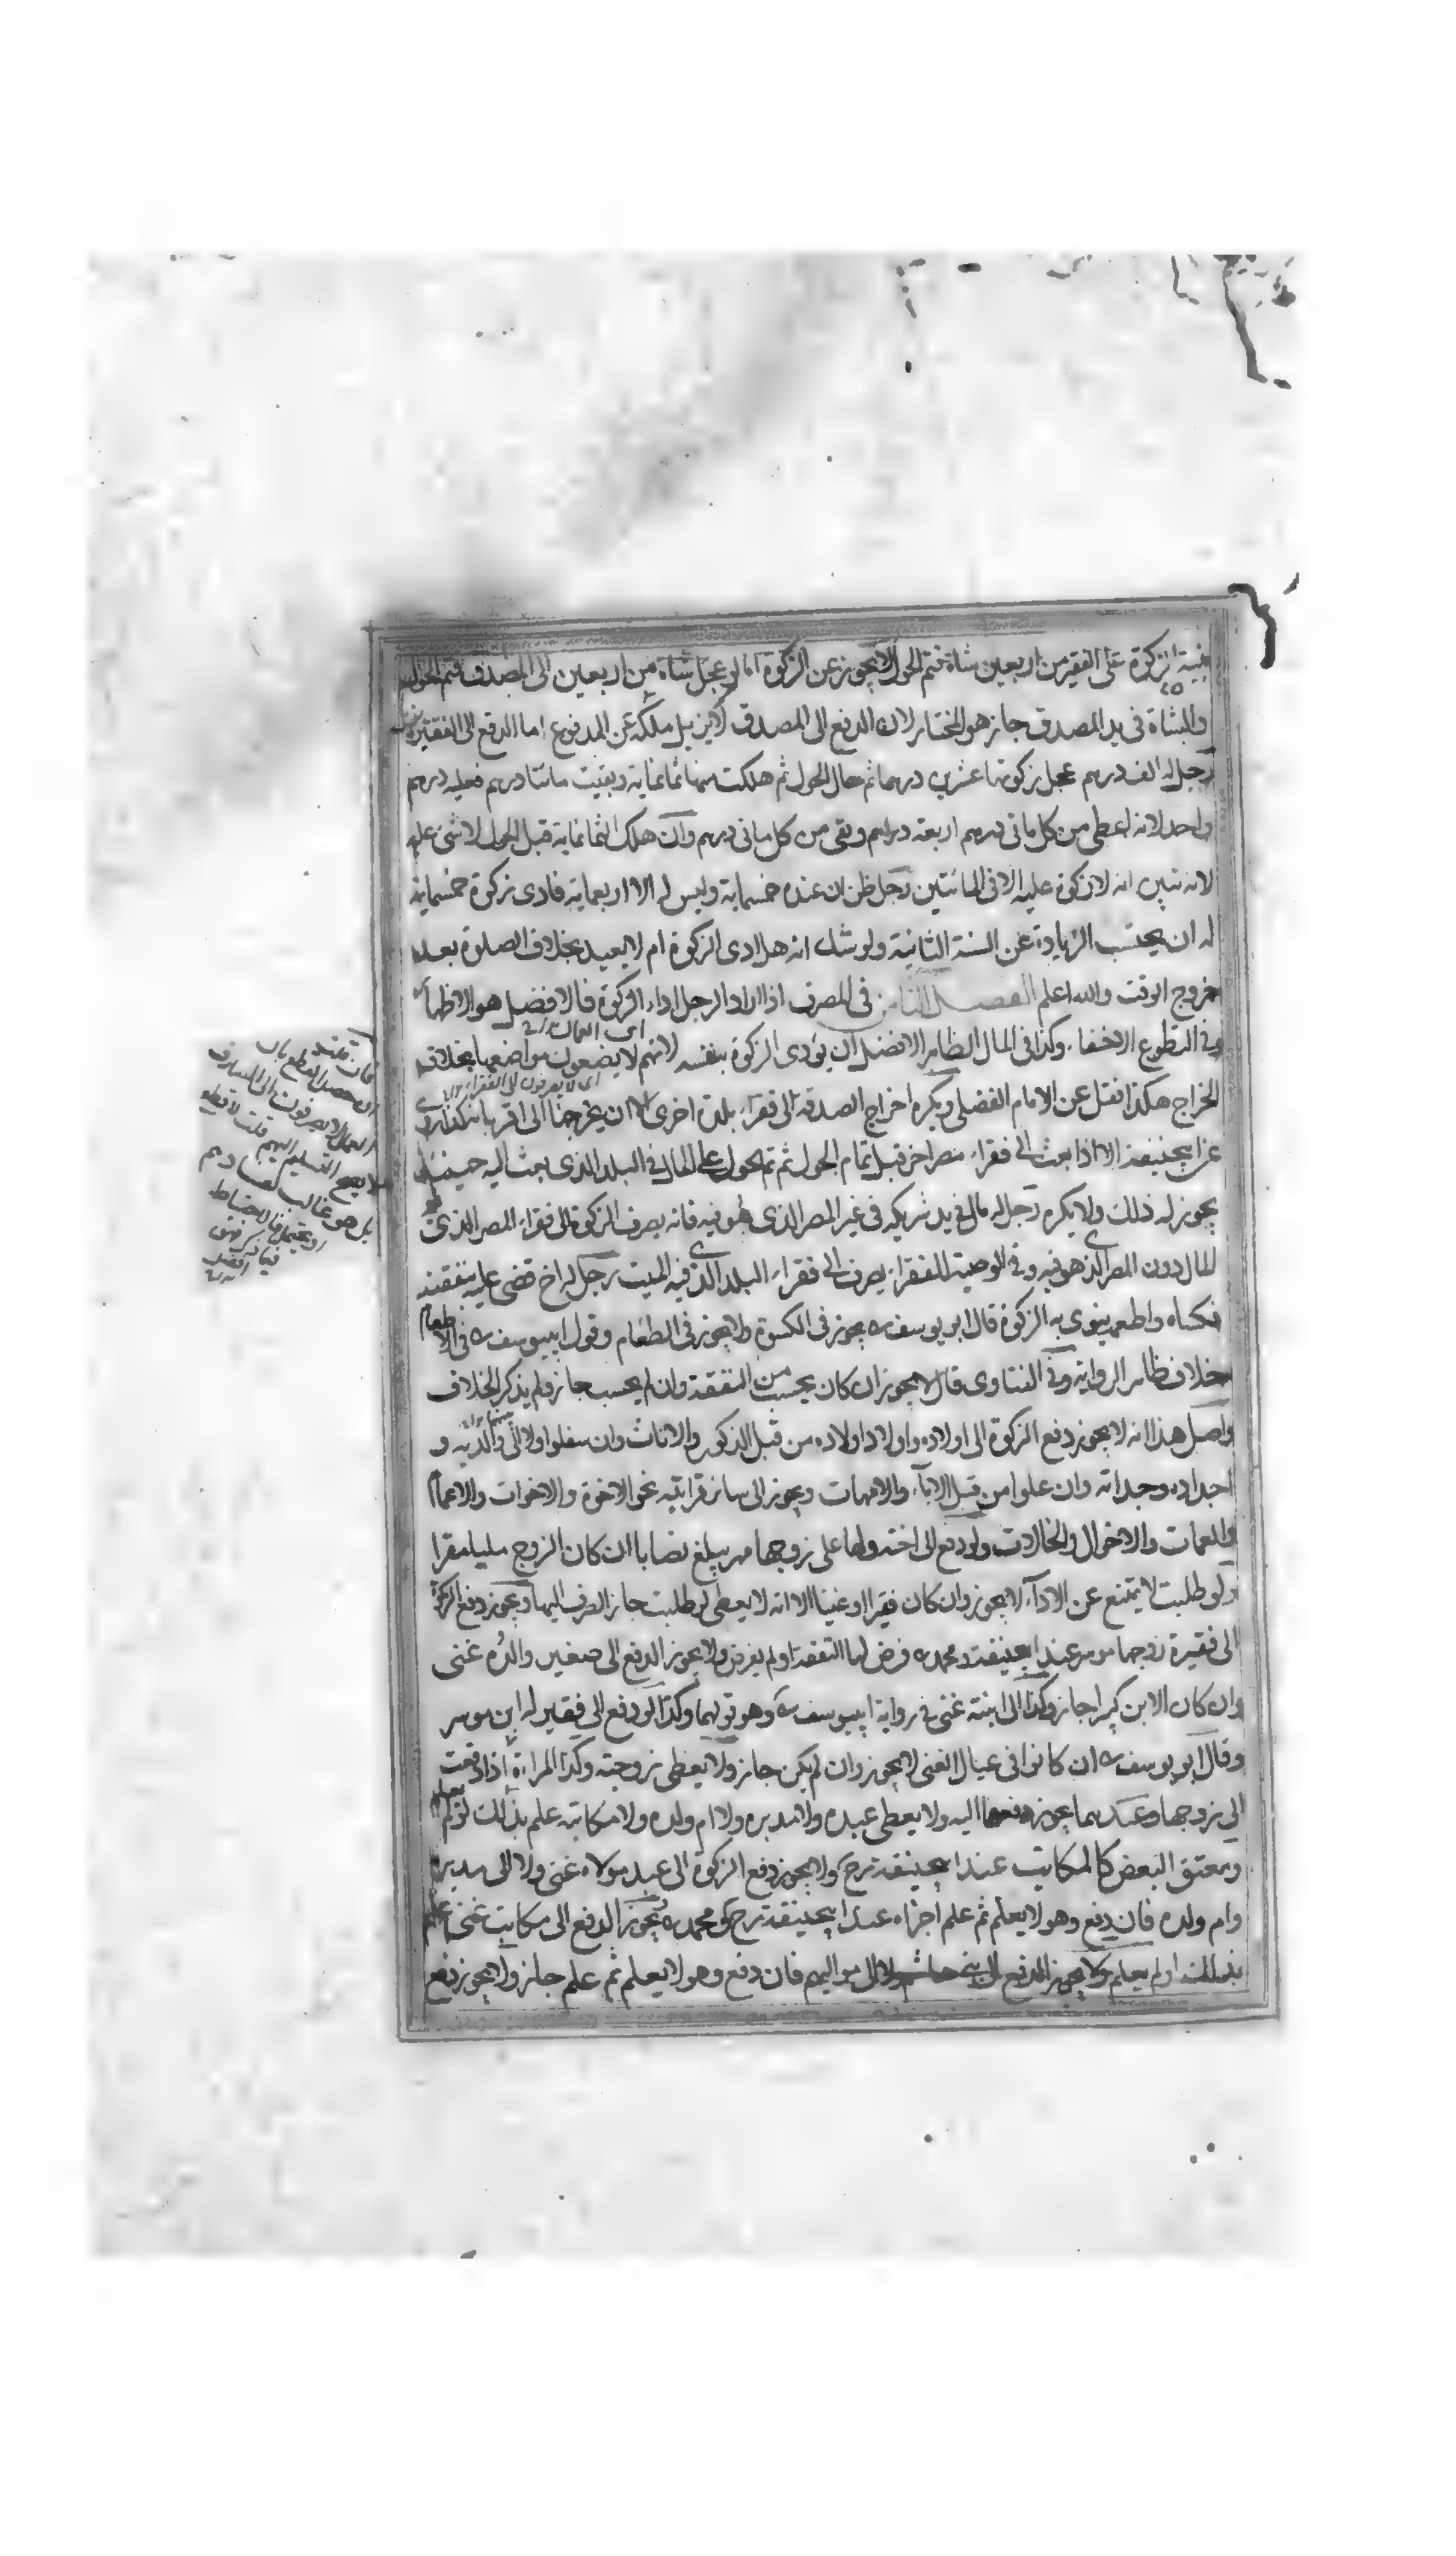 بنية الزكوة على الفقير من اربعين شاة فتم الحول لا يجوز عن الزكوة اما لو عجل شاة من اربعين الى المصدق فتم الحول
والشاة في يد المصدق جاز هو المختار لان الدفع الى المصدق لا يزيل ملكه عن المدفوع اما الدفع الى الفقير يزيل
رجل له الف درهم عجل زكوتها عشرين درهما ثم حال الحول ثم هلكت منها ثمانماية وبقيت مائتا درهم فعليه درهم
واحد لانه اعطى من كل مائى درهم اربعة دراهم وبقى من كل مائى درهم وان هلك الثمانماية قبل الحول لا شئ عليه
لانه تبين انه لا زكوة عليه الا في المائتين رجل ظن ان عنده خمسماية وليس له الا اربعماية فادى زكوة خمسماية
له ان يحتسب الزيادة عن السنة الثانية ولو شك انه هل ادى الزكوة ام لا يعيد بخلاف الصلوة بعد
خروج الوقت والله اعلم الفصل الثامن في المصرف اذا اراد الرجل اداء الزكوة فالافضل هو الاظهار
وفي التطوع الاخفا وكذا في المال الظاهر الافضل ان يؤدى الزكوة بنفسه لانهم لا يضعون مواضعها بخلاف
الخراج هكذا نقل عن الامام الفضلى ويكره اخراج الصدقة الى فقراء بلدة اخرى الا ان يخرجها الى اقربائه كذا روى
عن ابيحنيفة الا اذا بعث الى فقراء مصر اخر قبل تمام الحول ثم تم الحول على المال في البلد الذى بعث اليه حينئذ
يجوز له ذلك ولا يكره رجل له مال في يد شريكه في غير المصر الذى هو فيه فانه يصرف الزكوة الى فقراء المصر الذى فيه
المال دون المصر الذى هو فيه وفي الوصية للفقراء يصرف الى فقراء البلد الذى فيه الميت رجل له اخ قضى عليه بنفقته
فكساه واطعمه ينوى به الزكوة قال ابو يوسف يجوز في الكسوة ولا يجوز في الطعام وقول ابييوسف في الاطعام
خلاف ظاهر الرواية وفي الفتاوى قال لا يجوز ان كان يحسب من النفقة وان لم يحسب جاز ولم يذكر الخلاف
واصل هذا انه لا يجوز دفع الزكوة الى اولاده واولاد اولاده من قبل الذكور والاناث وان سفلوا ولا الى والديه و
اجداده وجداته وان علوا من قبل الاباء والامهات ويجوز الى سائر قرابته نحو الاخوة والاخوات والاعمام
والعمات والاخوال والخالات ولو دفع الى اخته ولها على زوجها مهر يبلغ نصابا ان كان الزوج مليا مقرا
ولو طلبت لا يمتنع عن الاداء لا يجوز وان كان فقيرا او غنيا الا انه لا يعطى لو طلبت جاز الصرف اليها ويجوز دفع الزكوة
الى فقيرة زوجها موسر عند ابيحنيفة ومحمد فرض لها النفقة او لم يفرض ولا يجوز الدفع الى صغير والده غنى
وان كان الابن كبيرا جاز وكذا الى ابنة غنى في رواية ابييوسف وهو قولهما وكذا لو دفع الى فقير له ابن موسر
وقال ابو يوسف ان كانوا في عيال الغنى لا يجوز وان لم يكن جاز ولا يعطى زوجته وكذا المراة اذا دفعت
الى زوجها وعندهما يجوز دفعها اليه ولا يعطى عبده ولا مدبره ولا ام ولده ولا مكاتبه علم بذلك او لم يعلم
ومعتق البعض كالمكاتب عند ابيحنيفة رح ولا يجوز دفع الزكوة الى عبد مولاه غنى ولا الى مدبره
وام ولده فان دفع وهو لا يعلم ثم علم اجزاه عند ابيحنيفة رح ومحمد ويجوز الدفع الى مكاتب غنى علم
بذلك او لم يعلم ولا يجوز الدفع الى بنى هاشم ولا الى مواليهم فان دفع وهو لا يعلم ثم علم جاز ولا يجوز دفع
اى العمال
اى لا يصرفون الى الفقراء
فان قلت
العمال لا يصرفون الى المصارف
التسليم اليهم قلت لا
بل هو غالب